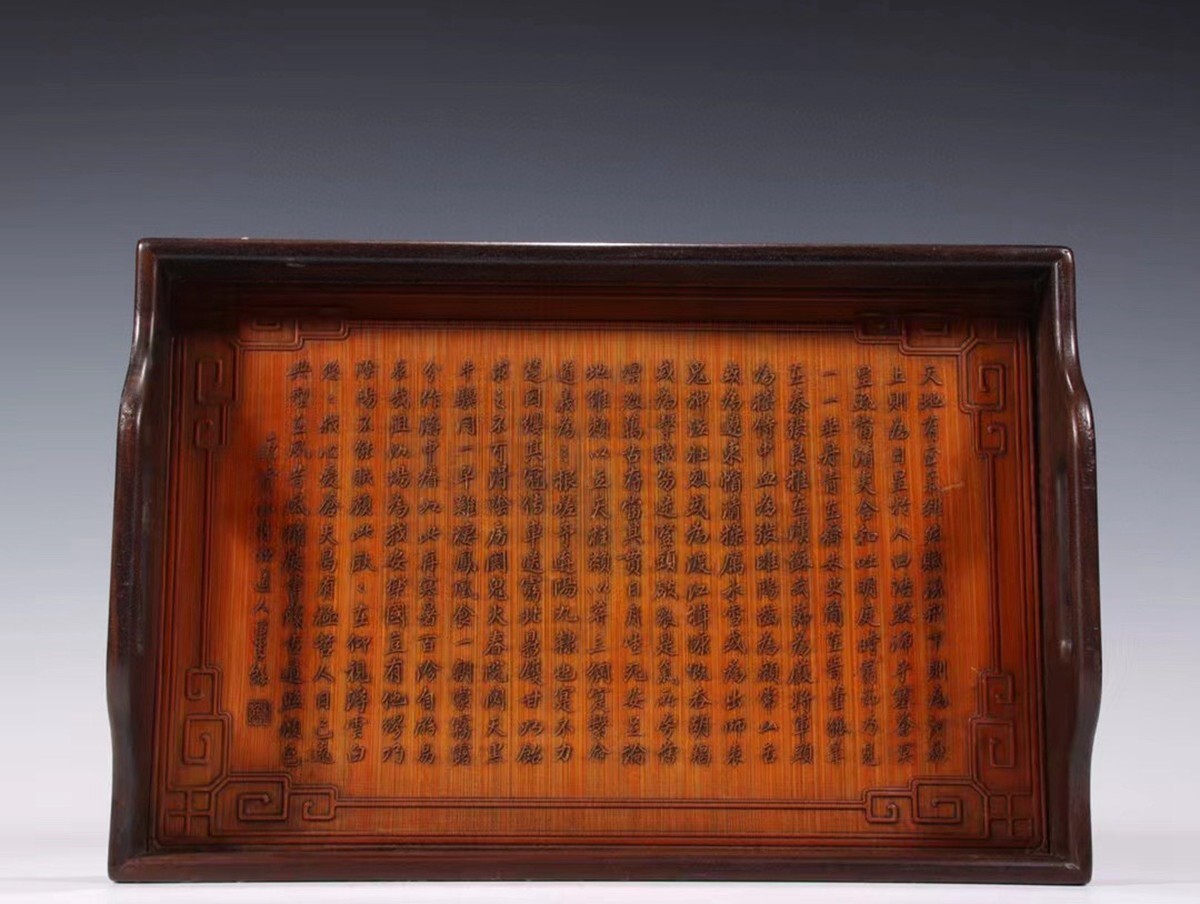 天地有正氣雜然賦流形下則為河嶽
上則為日星於人曰浩然沛乎塞蒼冥
皇路當清夷含和吐明庭時窮節乃見
一一垂丹青在齊太史簡在晉董狐筆
在秦張良椎在漢蘇武節為嚴將軍頭
為嵇侍中血為張睢陽齒為顏常山舌
或為遼東帽清操厲冰雪或為出師表
鬼神泣壯烈或為渡江楫慷慨吞胡羯
或為擊賊笏逆豎頭破裂是氣所旁薄
凜烈萬古存當其貫日月生死安足論
地維賴以立天柱賴以尊三綱實繫命
道義為之根嗟予遘陽九隸也實不力
楚囚纓其冠傳車送窮北鼎鑊甘如飴
求之不可得陰房闃鬼火春院閟天黑
牛驥同一皁雞棲鳳凰食一朝蒙霧露
分作溝中瘠如此再寒暑百沴自辟易
哀哉沮洳場為我安樂國豈有他繆巧
陰陽不能賊顧此耿〻在仰視浮雲白
悠〻我心憂蒼天曷有極哲人日已遠
典型在夙昔風簷展書讀古道照顏色
道人